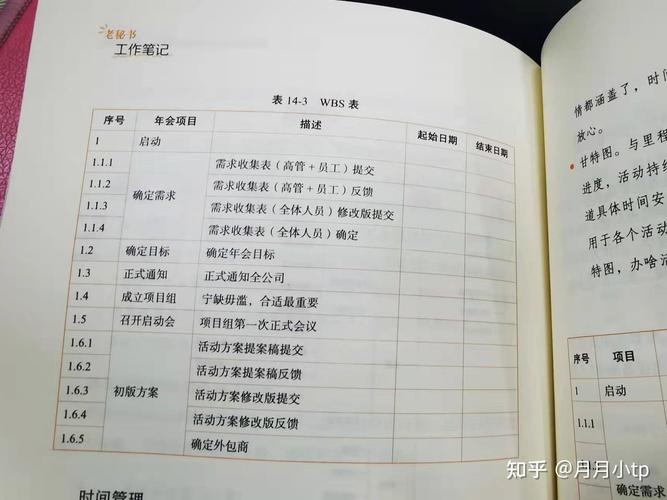 老秘书
工作笔记
表 14-3 WBS 表
序号 年会项目 描述 起始日期 结束日期
1 启动
1.1.1 需求收集表（高管＋员工）提交
1.1.2 需求收集表（高管＋员工）反馈
确定需求
1.1.3 需求收集表（全体人员）修改版提交
1.1.4 需求收集表（全体人员）确定
1.2 确定目标 确定年会目标
1.3 正式通知 正式通知全公司
1.4 成立项目组 宁缺毋滥，合适最重要
1.5 召开启动会 项目组第一次正式会议
1.6.1 活动方案提案稿提交
1.6.2 活动方案提案稿反馈
1.6.3 初版方案 活动方案修改版提交
1.6.4 活动方案修改版反馈
1.6.5 确定外包商
时间管理
情都涵盖了，时间
放心。
• 甘特图。与里程
进度，活动持续
道具体时间安
用于各个活动
特图，办啥活
序号 项目
1 启动
1.1.1
1.1.2
确定需求
知乎 @月月小tp